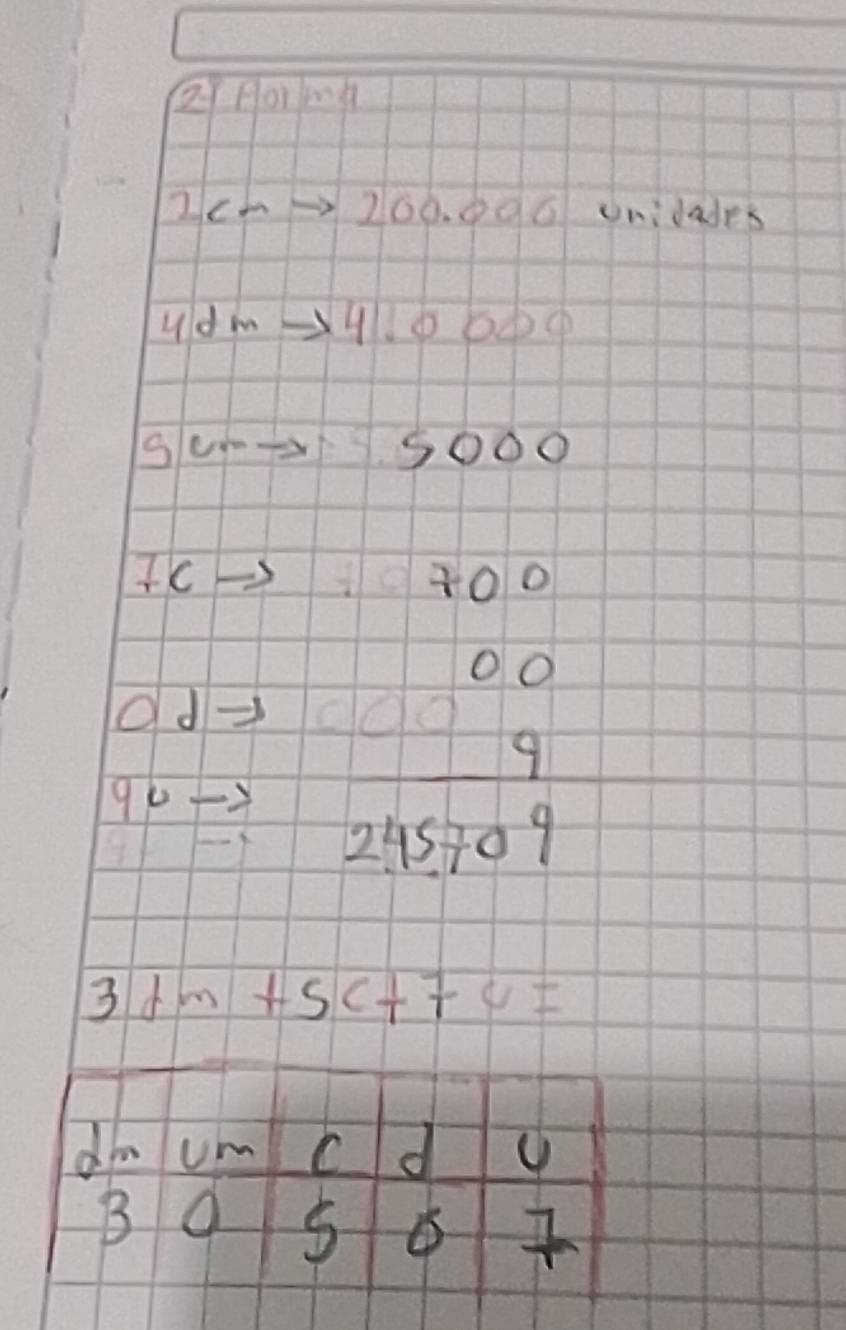 2) Forma
2cm → 200.000 unidades
4dm → 4 0 000
5um → 5000
7c → 700
00
0d → 000
9
9u →
245709
3dm + 5c + 7u =
dm um c d u
3 0 5 0 7